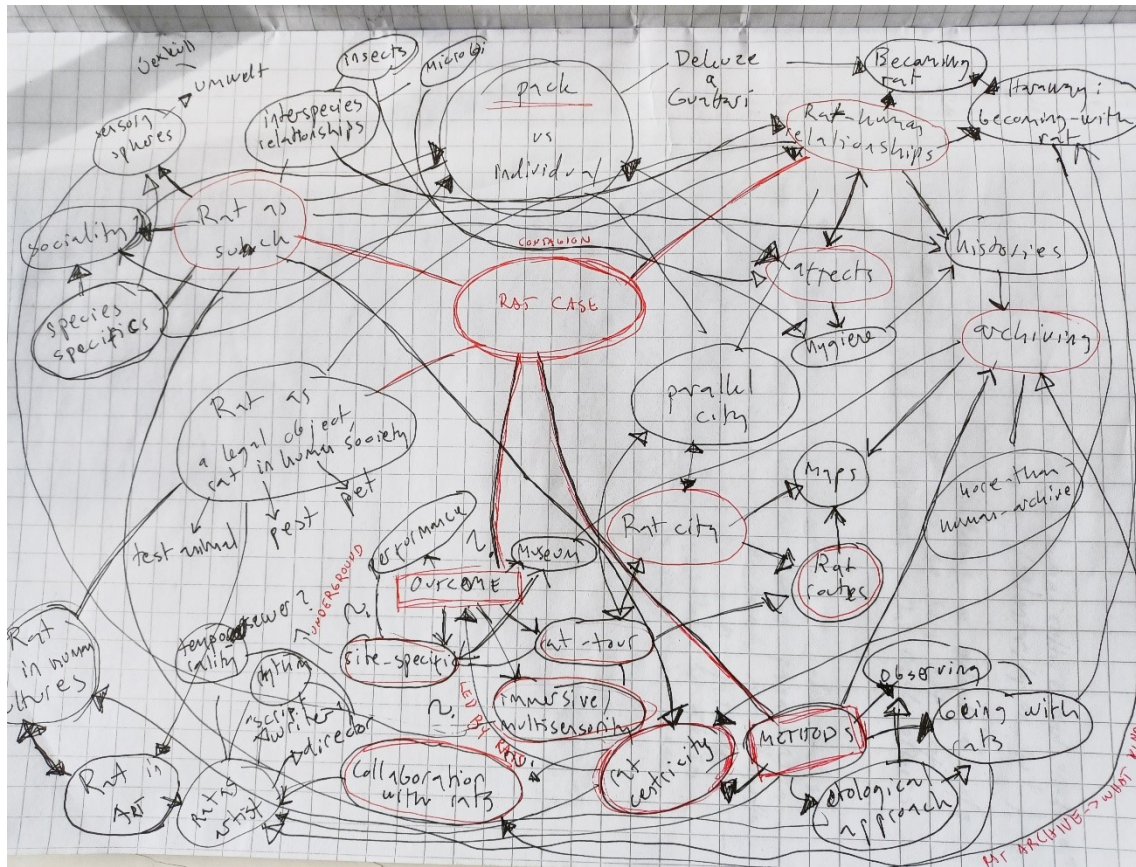 umwelt
sensory
spheres
insects
interspecies
relationships
pack
vs
individual
Deleuze
a
Guatari
Becoming
rat
Haraway:
becoming-with
rat
Rat-human
relationships
sociality
Rat as
such
species
specifics
CONTAGION
RAT CASE
affects
histories
hygiene
archiving
Rat as
a legal object,
rat in human society
test animal
pest
pet
parallel
city
Rat city
Maps
Rat
routes
more-than-
human-archive
performance
Museum
OUTCOME
UNDERGROUND
sewer?
site-specific
rat-tour
immersive/
multisensority
LED BY RATS!
Rat
in human
ltures
Rat in
ART
Rat as
artist
script
writer?
director
Collaboration
with rats
rat
centricity
METHODS
observing
being with
rats
etological
approach
MT ARCHIVE -> WHAT KIND